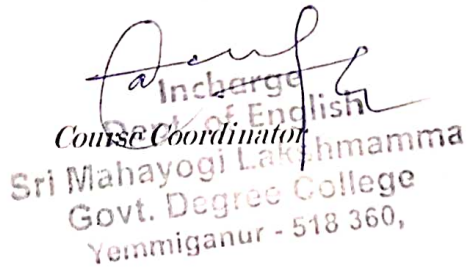 Incharge
Dept. of English
Course Coordinator
Sri Mahayogi Lakshmamma
Govt. Degree College
Yemmiganur - 518 360,